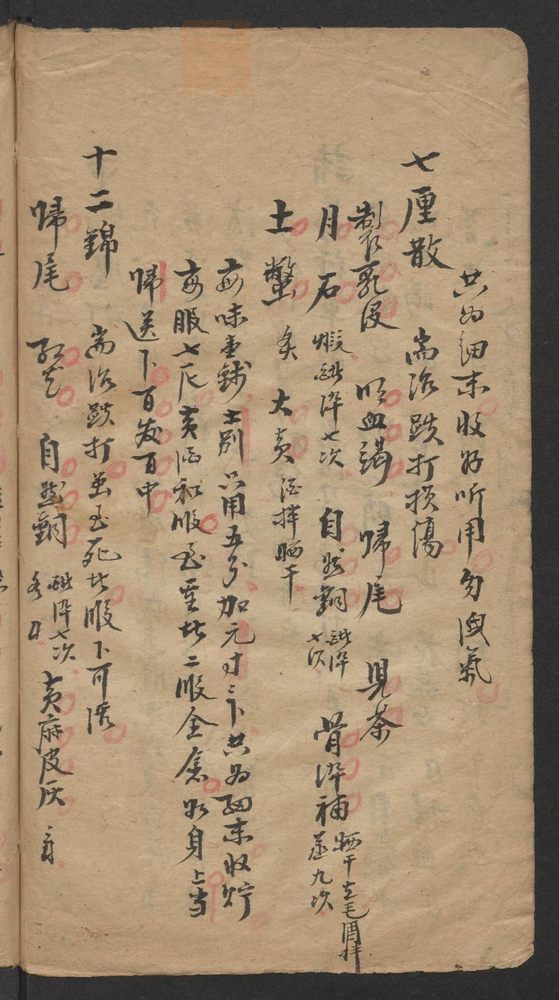 共為細末收好听用勿洩氣
七厘散 耑治跌打损傷
製乳没 血竭 歸尾 児茶
月石 煅 淬七次 自然銅 淬七次 骨碎補 晒干去毛酒拌蒸九次
土鱉 炙 大黄 酒拌晒干
每味壹錢 土別只用五分加元寸二下共為細末收貯
每服七厘黄酒和服 至重者二服全愈如身上当
歸送下百发百中
十二錦 耑治跌打 至死者服下可活
歸尾 紅花 自然銅 淬七次 黄麻皮灰